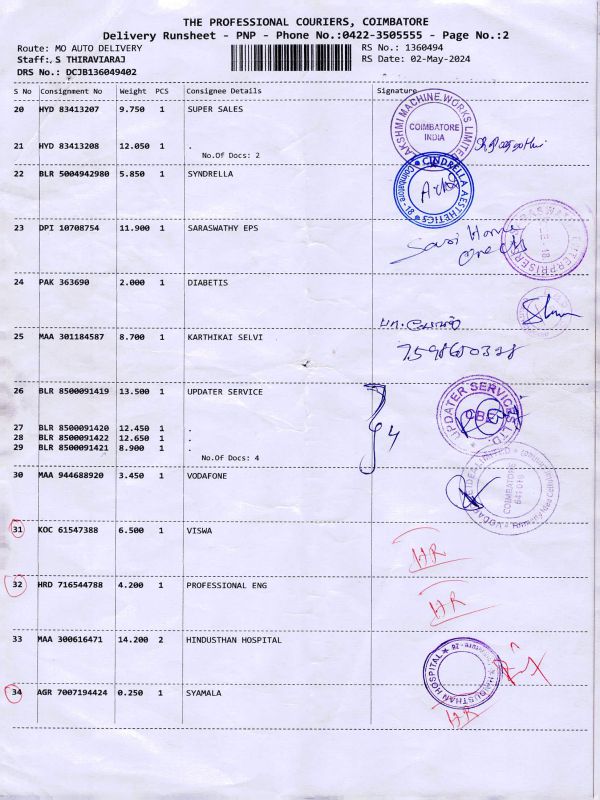 THE PROFESSIONAL COURIERS, COIMBATORE
Delivery Runsheet - PNP - Phone No.:0422-3505555 - Page No.:2
Route: MO AUTO DELIVERY RS No.: 1360494
Staff: S THIRAVIARAJ RS Date: 02-May-2024
DRS No.: DCJB136049402
S No Consignment No Weight PCS Consignee Details Signature
20 HYD 83413207 9.750 1 SUPER SALES
21 HYD 83413208 12.050 1 .
No.Of Docs: 2
LAKSHMI MACHINE WORKS LIMITED
COIMBATORE
INDIA
22 BLR 5004942980 5.850 1 SYNDRELLA
CINDRELLA AESTHETICS
Coimbatore - 18
23 DPI 10708754 11.900 1 SARASWATHY EPS
Sasi Home
24 PAK 363690 2.000 1 DIABETIS
25 MAA 301184587 8.700 1 KARTHIKAI SELVI
26 BLR 8500091419 13.500 1 UPDATER SERVICE
27 BLR 8500091420 12.450 1 .
28 BLR 8500091422 12.650 1 .
29 BLR 8500091421 8.900 1 .
No.Of Docs: 4
4
UPDATER SERVICES LTD.
CBE
30 MAA 944688920 3.450 1 VODAFONE
COIMBATORE
31 KOC 61547388 6.500 1 VISWA
HR
32 HRD 716544788 4.200 1 PROFESSIONAL ENG
HR
33 MAA 300616471 14.200 2 HINDUSTHAN HOSPITAL
HINDUSTHAN HOSPITAL
34 AGR 7007194424 0.250 1 SYAMALA
HR